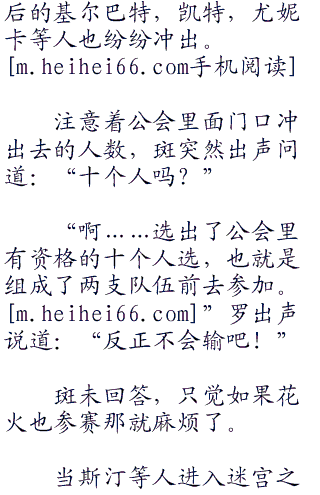 后的基尔巴特，凯特，尤妮
卡等人也纷纷冲出。
[m.heihei66.com手机阅读]
注意着公会里面门口冲
出去的人数，斑突然出声问
道：“十个人吗？”
“啊……选出了公会里
有资格的十个人选，也就是
组成了两支队伍前去参加。
[m.heihei66.com]”罗出声
说道：“反正不会输吧！”
斑未回答，只觉如果花
火也参赛那就麻烦了。
当斯汀等人进入迷宫之